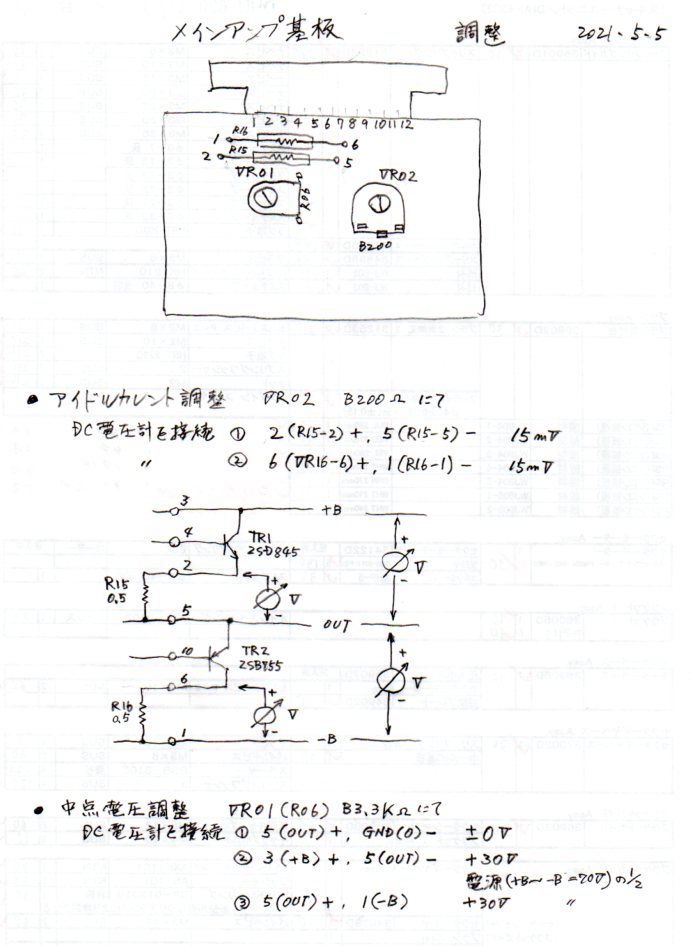 メインアンプ基板 調整 2021-5-5
1 2 3 4 5 6 7 8 9 10 11 12
1 R16 6
2 R15 5
VR01 VR02
R06
B200
• アイドルカレント調整 VR02 B200Ωにて
DC電圧計を接続 ① 2(R15-2)+, 5(R15-5)- 15mV
〃 ② 6(VR16-6)+, 1(R16-1)- 15mV
3 +B
4 TR1
2SD845
2
R15
0.5
+ V -
+ V -
5 OUT
10 TR2
2SB755
6
R16
0.5
+ V -
+ V -
1 -B
• 中点電圧調整 VR01(R06) B3.3KΩにて
DC電圧計を接続 ① 5(OUT)+, GND(0)- ±0V
② 3(+B)+, 5(OUT)- +30V
電源(+B~-B=70V)の1/2
③ 5(OUT)+, 1(-B) +30V 〃